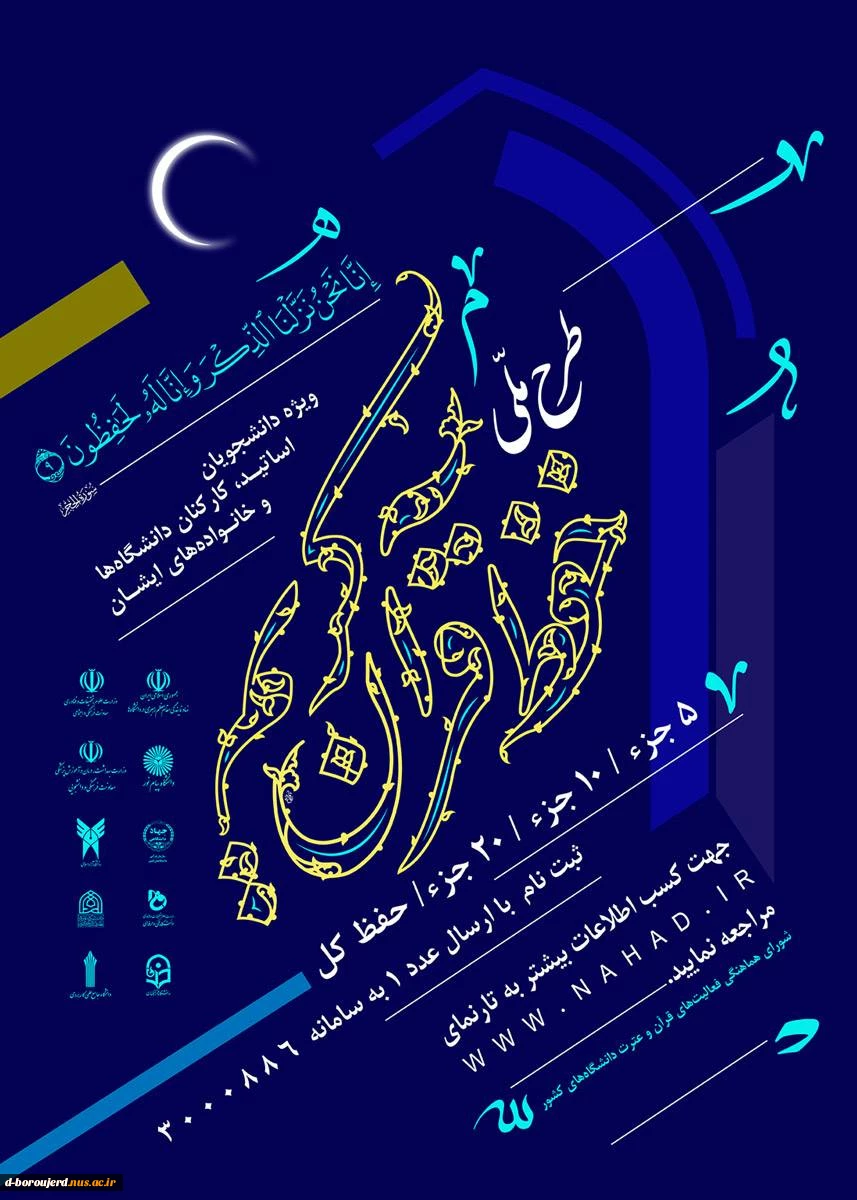 إِنَّا نَحْنُ نَزَّلْنَا ٱلذِّكْرَ وَإِنَّا لَهُۥ لَحَٰفِظُونَ ٩
طرح ملّی
حفظ قرآن کریم
ویژه دانشجویان
اساتید، کارکنان دانشگاه‌ها
و خانواده‌های ایشان
۵ جزء / ۱۰ جزء / ۲۰ جزء / حفظ کل
ثبت نام با ارسال عدد ۱ به سامانه ۳۰۰۰۸۸۶
جهت کسب اطلاعات بیشتر به تارنمای
WWW.NAHAD.IR
مراجعه نمایید.
شورای هماهنگی فعالیت‌های قرآن و عترت دانشگاه‌های کشور
جمهوری اسلامی ایران
دانشگاه پیام نور
جهاد
d-boroujerd.nus.ac.ir